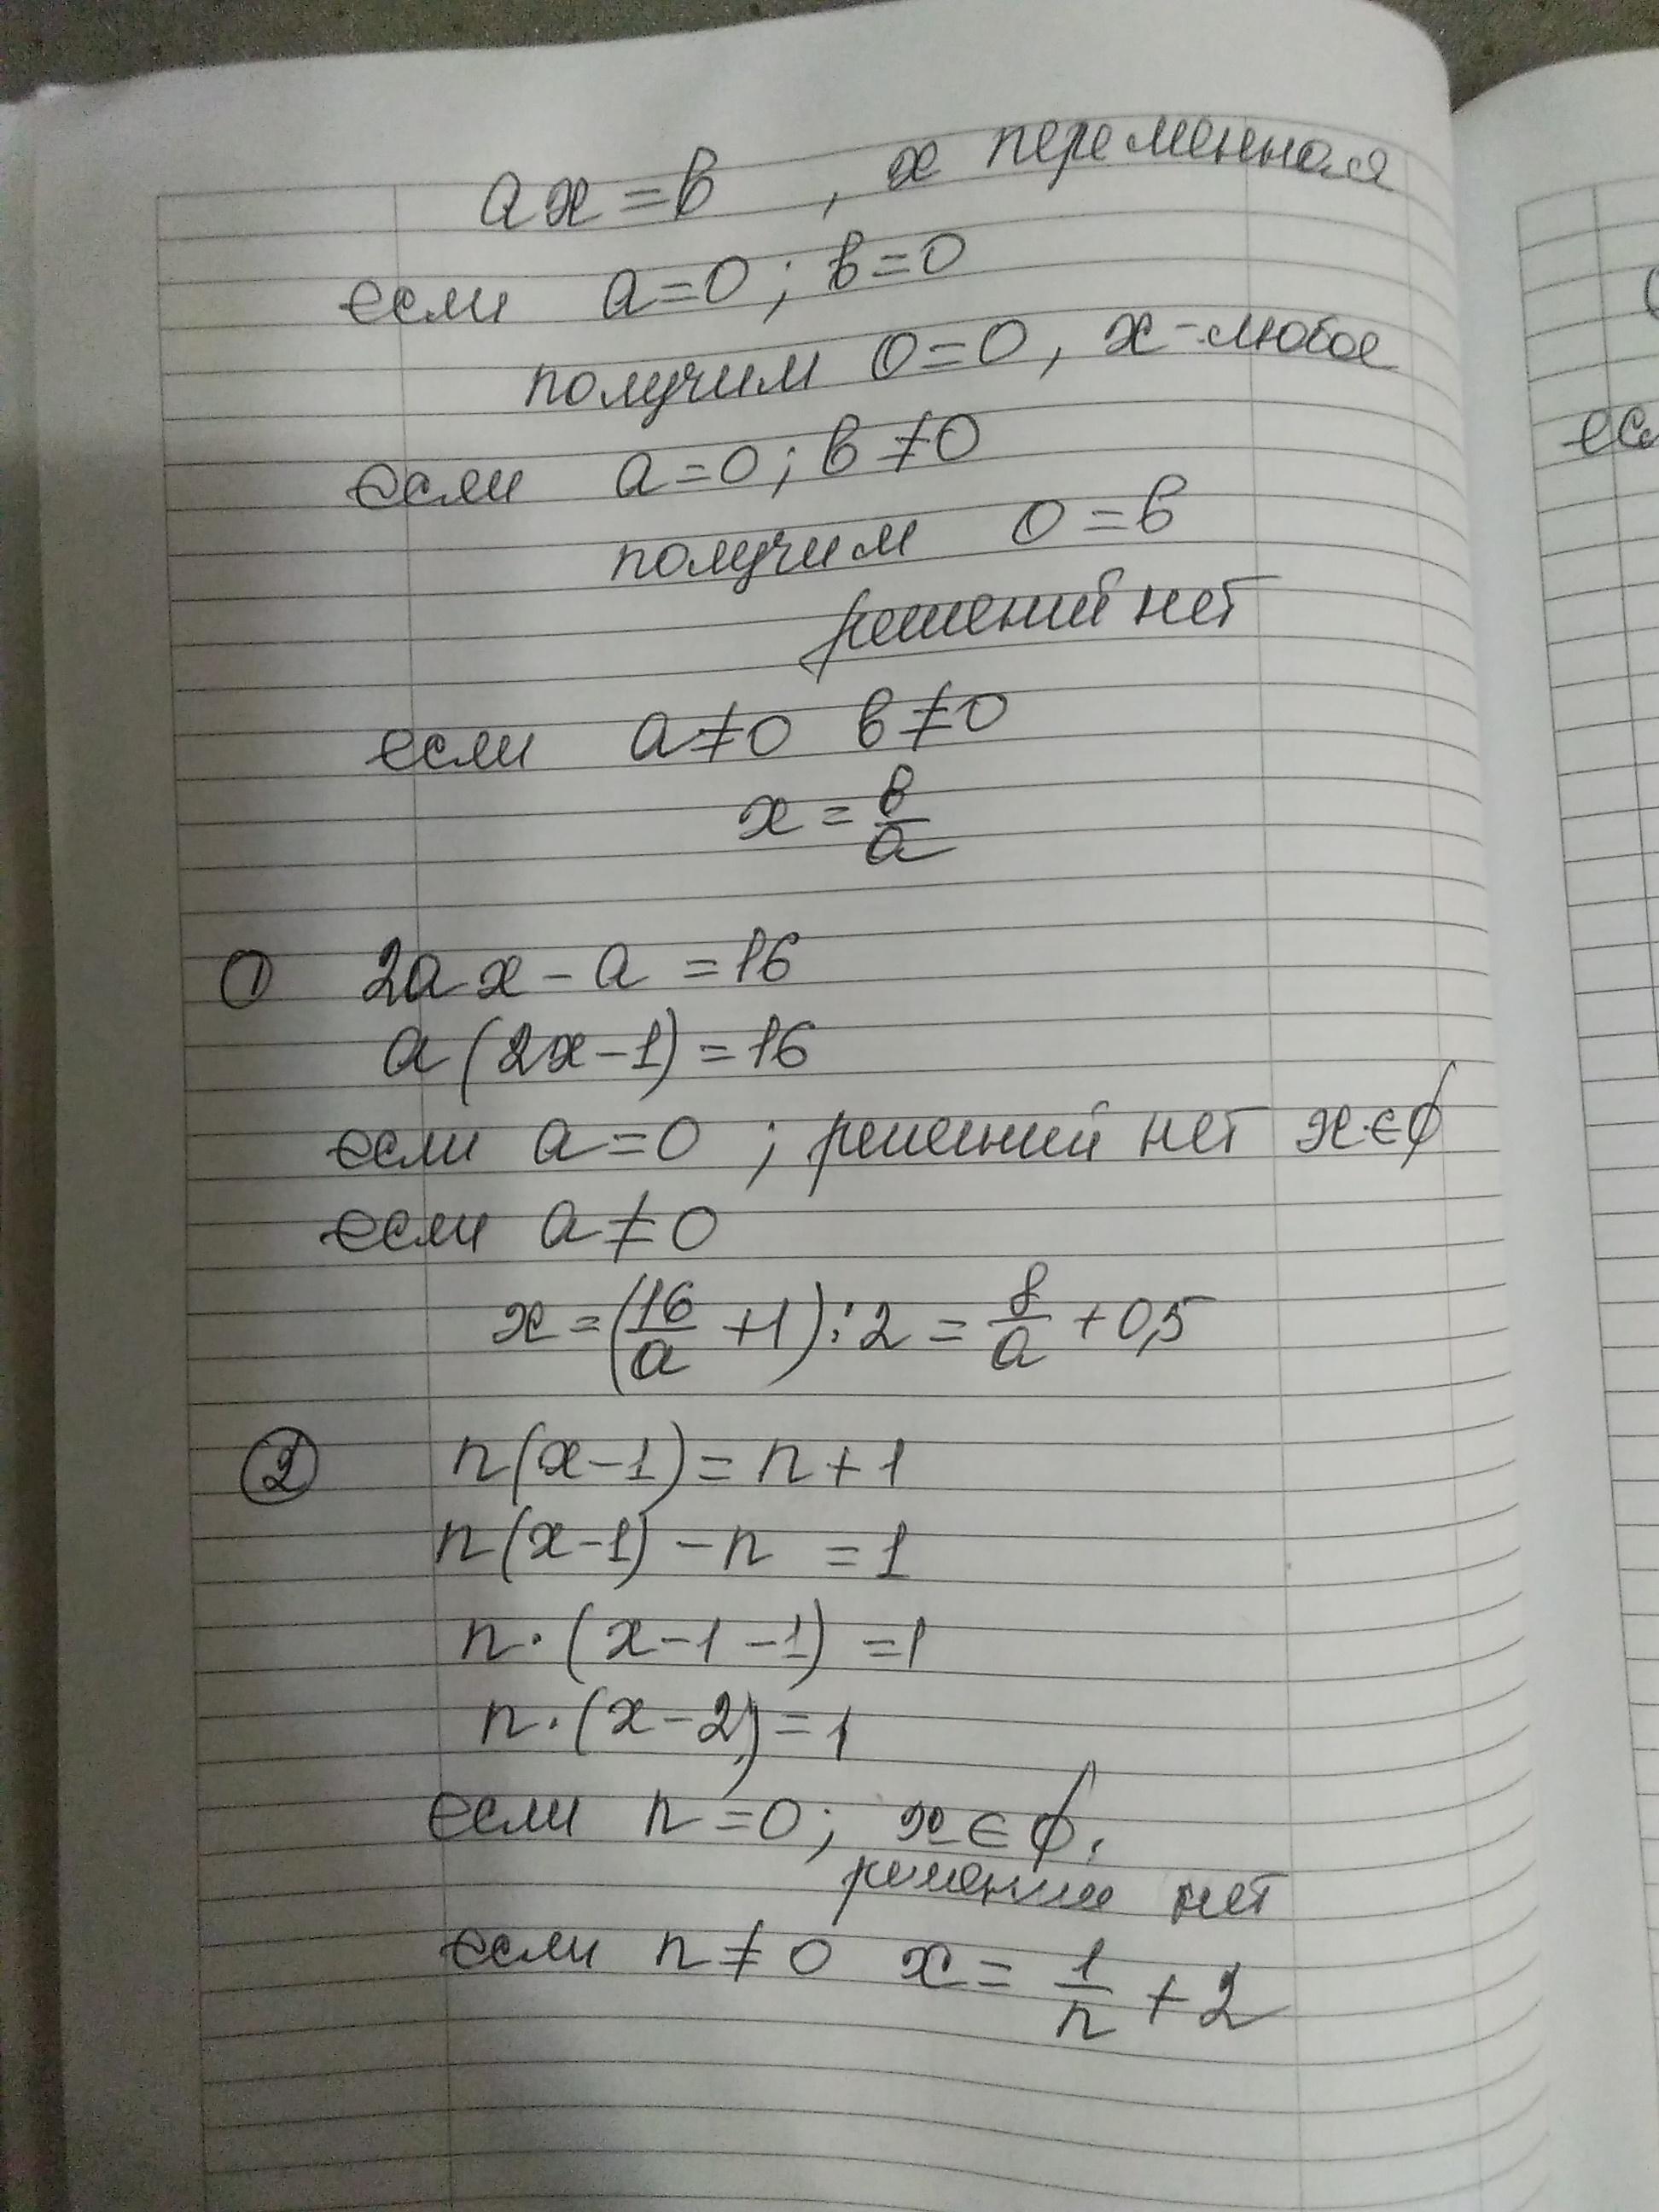 ax = в , x переменная
если a=0; в=0
получим 0=0, x-любое
если a=0; в≠0
получим 0=в
решений нет
если a≠0 в≠0
x = в/a
① 2ax - a = 16
a(2x-1) = 16
если a=0 ; решений нет x∈∅
если a≠0
x = (16/a +1):2 = 8/a + 0,5
② n(x-1) = n+1
n(x-1) - n = 1
n·(x-1-1) = 1
n·(x-2) = 1
если n=0; x∈∅,
решений нет
если n≠0 x = 1/n + 2
есл